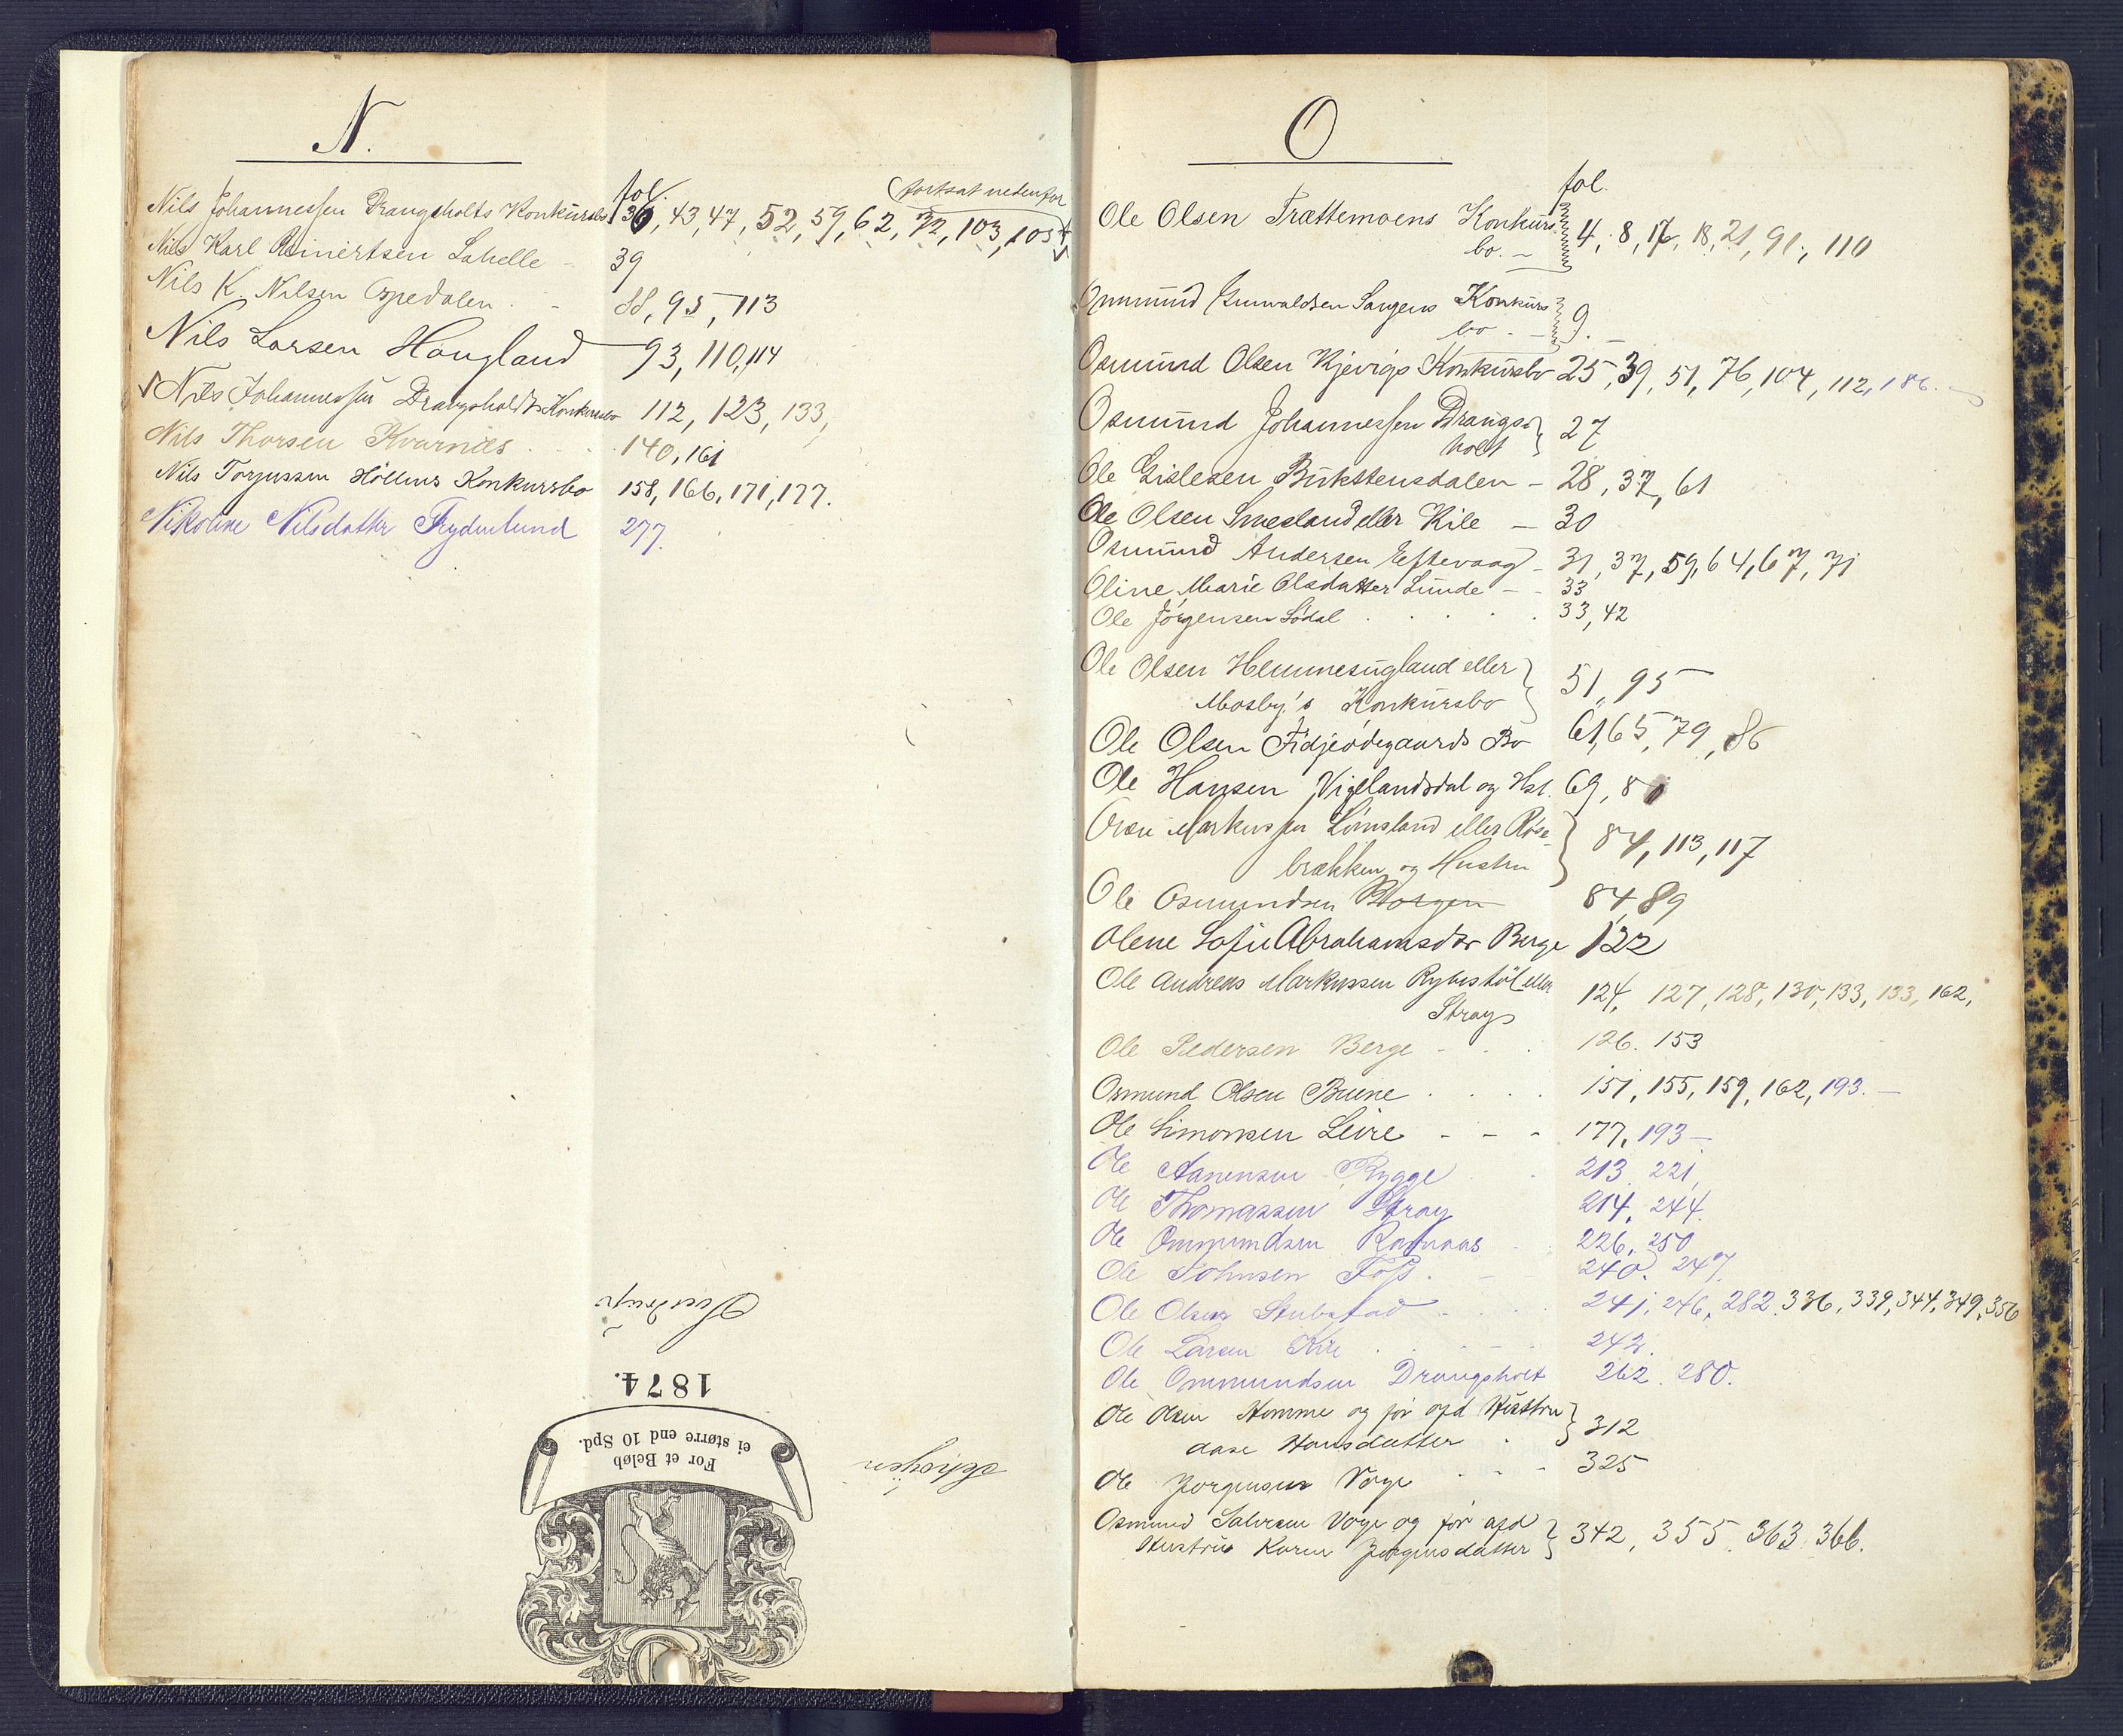 N.
fol.
(fortsat nedenfor
Nils Johannessen Drangsholts Konkursbo 36, 43, 47, 52, 59, 62, 72, 103, 105
Nils Karl Reinertsen Sahelle - 39
Nils K. Nilsen Espedalen . - 88, 95, 113
Nils Larsen Haugland 93, 110, 114
√ Nils Johannessen Drangsholdts Konkursbo 112, 123, 133,
Nils Thorsen Kvarnæs . . . 140, 161
Nils Torjussen Höllens Konkursbo 158, 166, 171, 177.
Nikoline Nilsdatter Frydenlund 277.
1874.
For et Beløb
ei større end 10 Spd.
O
fol.
Ole Olsen Trættemoens Konkurs-
bo. - 4, 8, 17, 18, 21, 91, 110
Ommund Gunvaldsen Saugens Konkurs
bo - 9.
Osmund Olsen Kjevigs Konkursbo 25, 39, 51, 76, 104, 112, 186.
Osmund Johannessen Drangs-
holt 27
Ole Gislesen Bukstensdalen - 28, 37, 61
Ole Olsen Smesland eller Kile - 30
Osmund Andersen Eftevaag - 31, 37, 59, 64, 67, 71
Oline Marie Olsdatter Lunde - - 33
Ole Jörgensen Södal . . . . . 33, 42
Ole Olsen Hemmesugland eller
Mosby's Konkursbo 51, 95
Ole Olsen Fidjeødegaards Bo 61, 65, 79, 86
Ole Hansen Vigelandsdal og Hst. 69, 80
Orsen Markussen Lömsland eller Röse-
brækken og Hustru 84, 113, 117
Ole Osmundsen Borgen 84, 89
Olene Sofie Abrahamsdtr Berge 122
Ole Andreas Markussen Rybestöl eller
Stray 124, 127, 128, 130, 133, 133, 162,
Ole Pedersen Berge - . . 126. 153
Osmund Olsen Buene . . . . 151, 155, 159, 162, 193. -
Ole Simonsen Leire - - - 177, 193 -
Ole Aanensen Rygge . . 213. 221,
Ole Thomassen Stray 214, 244.
Ole Ommundsen Ramnaas . . 226, 250
Ole Johnsen Foss . - 240. 247.
Ole Olsen Stubstad - . . 241, 246, 282. 336, 339, 344, 349, 356
Ole Larsen Kire . . - - 242.
Ole Ommundsen Drangsholt 262. 280.
Ole Olsen Homme og før afd Hustru
Aase Hansdatter . 312
Ole Jørgensen Vage - - - 325
Osmund Salvesen Vage og før afd
Hustru Karen Jørgensdatter 342, 355. 363. 366.